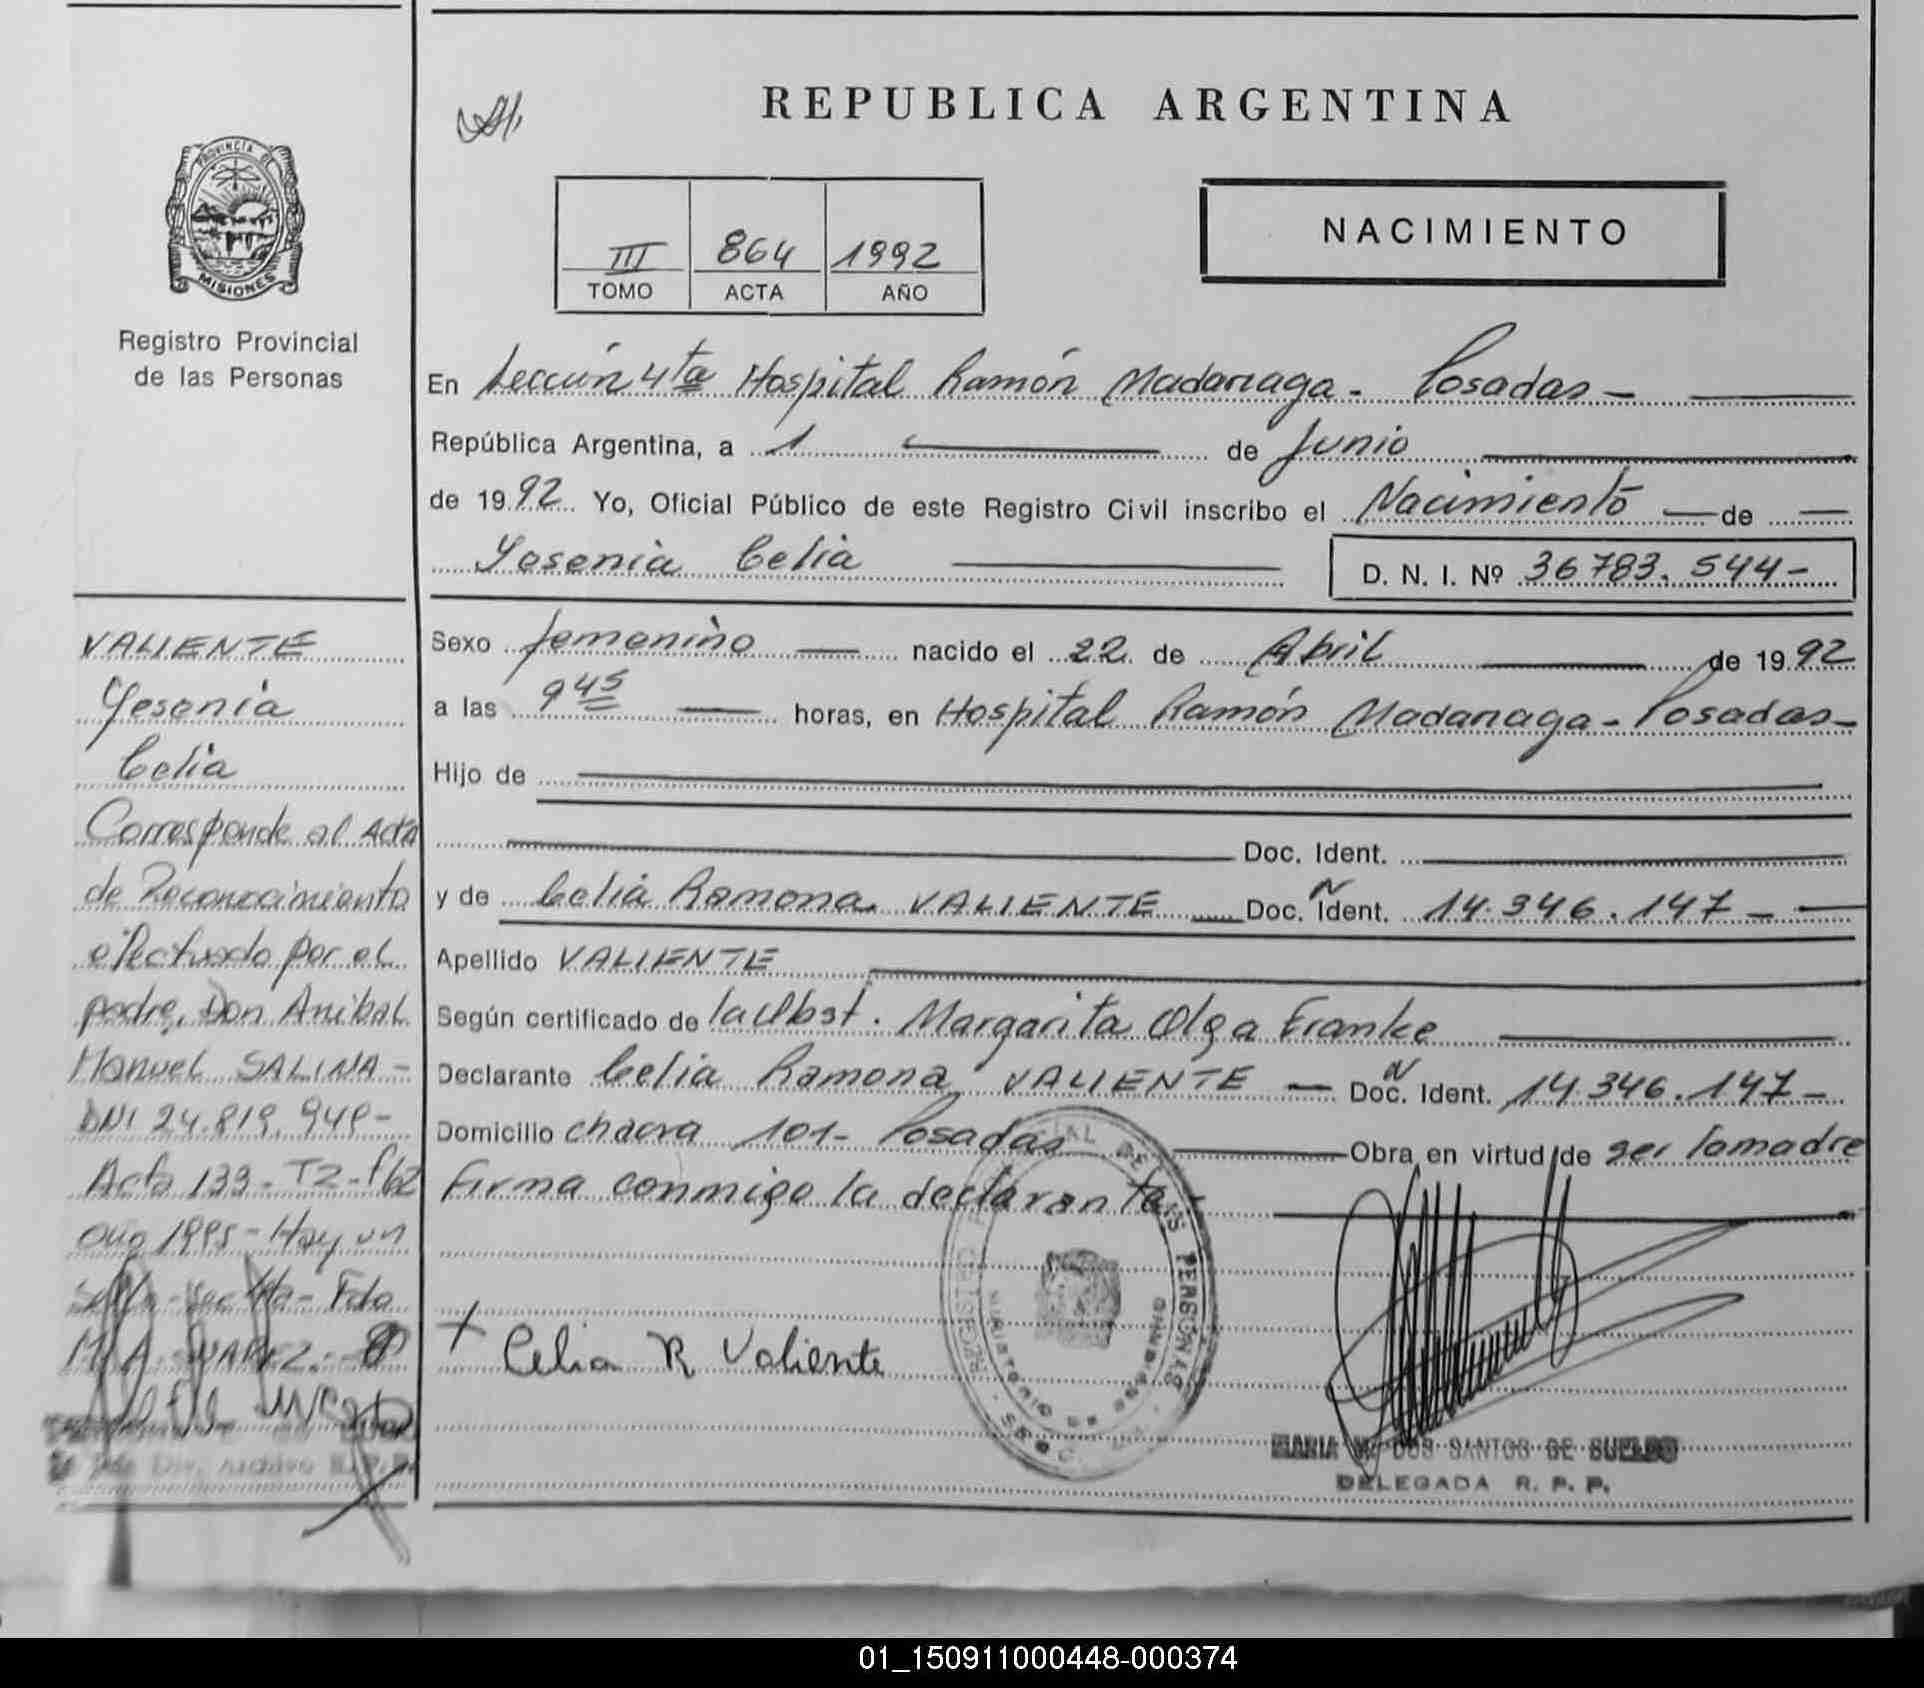 REPUBLICA ARGENTINA
PROVINCIA DE
MISIONES
Registro Provincial
de las Personas
III 864 1992
TOMO ACTA AÑO
NACIMIENTO
En Sección 4ta Hospital Ramón Madariaga - Posadas -
República Argentina, a 1 de Junio
de 1992 Yo, Oficial Público de este Registro Civil inscribo el Nacimiento de
Yesenia Celia
D. N. I. Nº 36783.544-
Sexo femenino nacido el 22 de Abril de 1992
a las 9 45 horas, en Hospital Ramón Madariaga - Posadas -
Hijo de
Doc. Ident.
y de Celia Ramona VALIENTE Doc. Ident. 14.346.147 -
Apellido VALIENTE
Según certificado de la Obst. Margarita Olga Franke
Declarante Celia Ramona VALIENTE - Doc. Ident. 14.346.147 -
Domicilio chacra 101 - Posadas Obra en virtud de ser la madre
Firma conmigo la declarante
Celia R Valiente
MARIA DOS SANTOS DE SUELDO
DELEGADA R. P. P.
VALIENTE
Yesenia
Celia
Corresponde al Acta
de Reconocimiento
efectuado por el
padre, Don Anibal
Manuel SALINA -
DNI 24.819.949-
Acta 133 - T2 - f62
año 1995 - Hay un
sello - Fdo
M. A. SUAREZ -
Div. Archivo R.P.P.
01_150911000448-000374